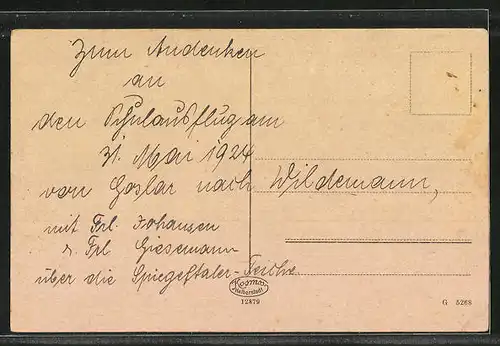 Zum Andenken
an
den Schulausflug am
31. Mai 1924
von Goslar nach Wildemann,
mit Frl. Johansen
u. Frl Giesemann
über die Spiegeltaler-Teiche
Kosmos
Halberstadt
12879
G 5268